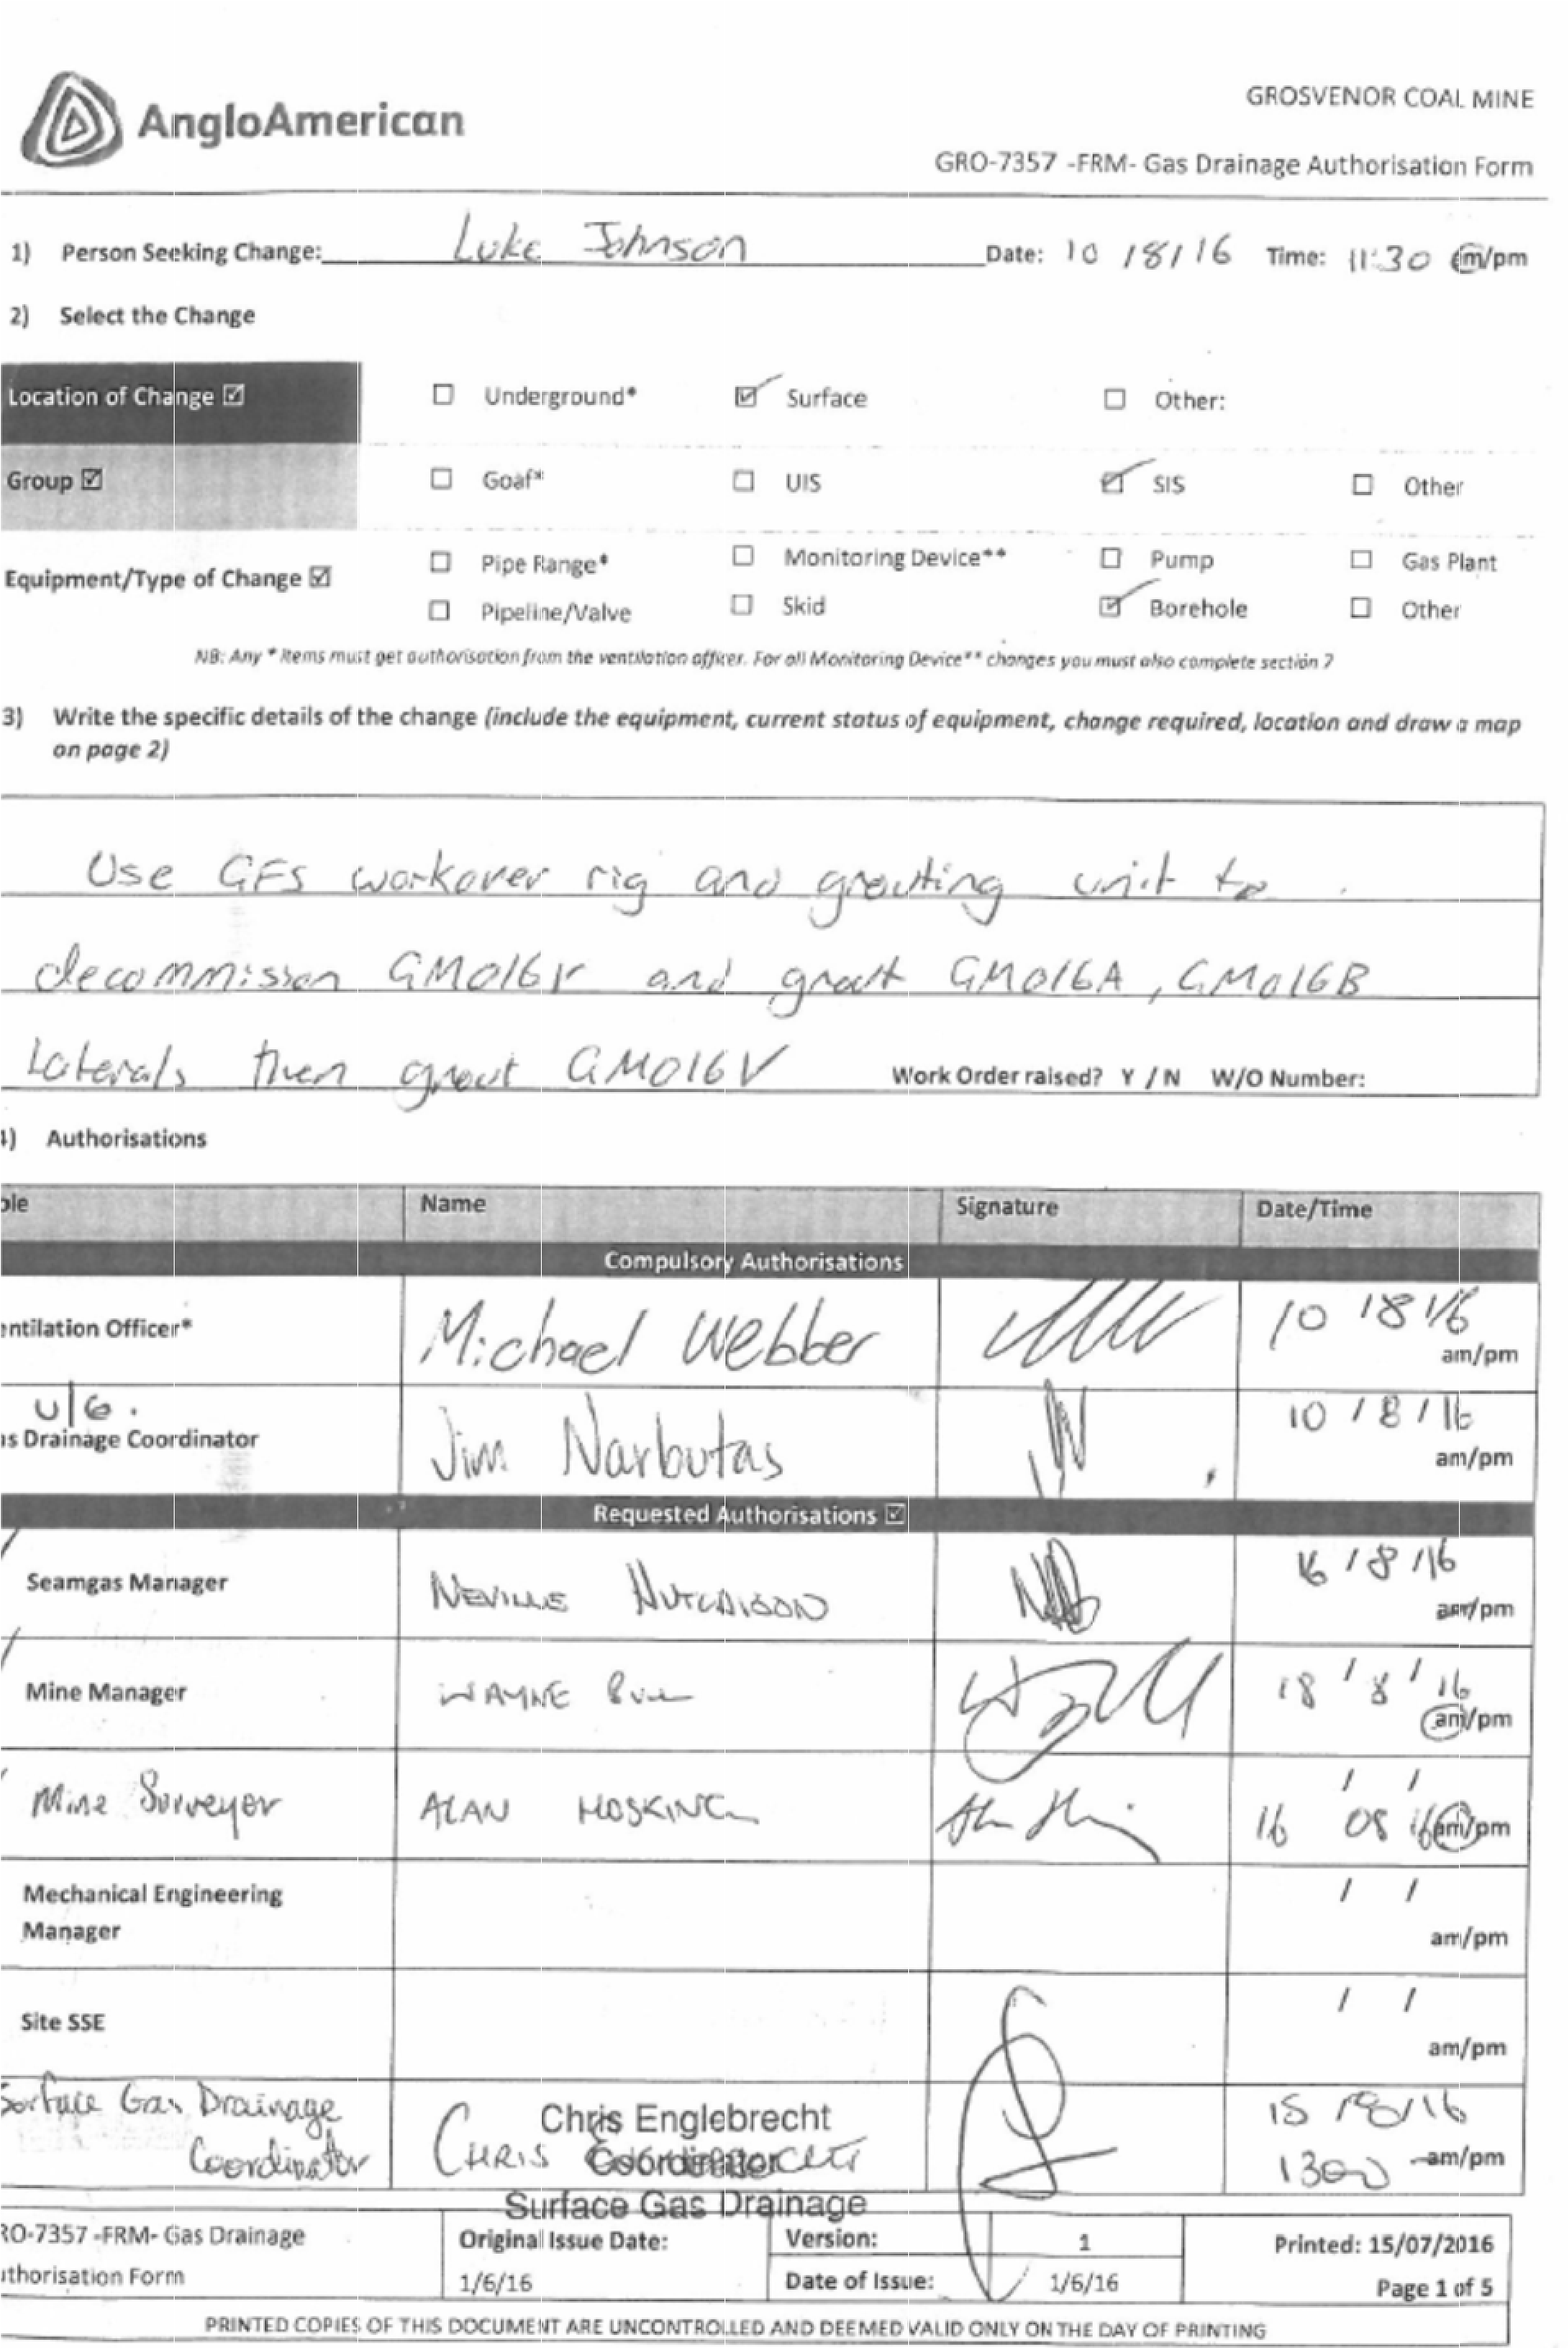 AngloAmerican
GROSVENOR COAL MINE
GRO-7357 -FRM- Gas Drainage Authorisation Form
1) Person Seeking Change: Luke Johnson Date: 10 /8/16 Time: 11:30 am/pm
2) Select the Change
Location of Change ☑ ☐ Underground* ☑ Surface ☐ Other:
Group ☑ ☐ Goaf* ☐ UIS ☑ SIS ☐ Other
Equipment/Type of Change ☑ ☐ Pipe Range* ☐ Monitoring Device** ☐ Pump ☐ Gas Plant
☐ Pipeline/Valve ☐ Skid ☑ Borehole ☐ Other
NB: Any * items must get authorisation from the ventilation officer. For all Monitoring Device** changes you must also complete section 7
3) Write the specific details of the change (include the equipment, current status of equipment, change required, location and draw a map
on page 2)
Use GFS workover rig and grouting unit to
decommission GM016V and grout GM016A, GM016B
Laterals then grout GM016V Work Order raised? Y / N W/O Number:
4) Authorisations
ole Name Signature Date/Time
Compulsory Authorisations
entilation Officer* Michael Webber 10 /8 1/6
am/pm
U/G.
as Drainage Coordinator Jim Narbutas JN 10 / 8 / 16
am/pm
Requested Authorisations ☑
Seamgas Manager NEVILLE HUTCHISON 16 / 8 /16
am/pm
Mine Manager WAYNE BULL 18 / 8 / 16
am/pm
Mine Surveyor ALAN HOSKING / /
16 08 16 am/pm
Mechanical Engineering
Manager / /
am/pm
Site SSE / /
am/pm
Surface Gas Drainage
Coordinator CHRIS 15 /8/16
1300 am/pm
Chris Englebrecht
Coordinator
Surface Gas Drainage
RO-7357 -FRM- Gas Drainage
uthorisation Form
Original Issue Date:
1/6/16
Version: 1
Date of Issue: 1/6/16
Printed: 15/07/2016
Page 1 of 5
PRINTED COPIES OF THIS DOCUMENT ARE UNCONTROLLED AND DEEMED VALID ONLY ON THE DAY OF PRINTING